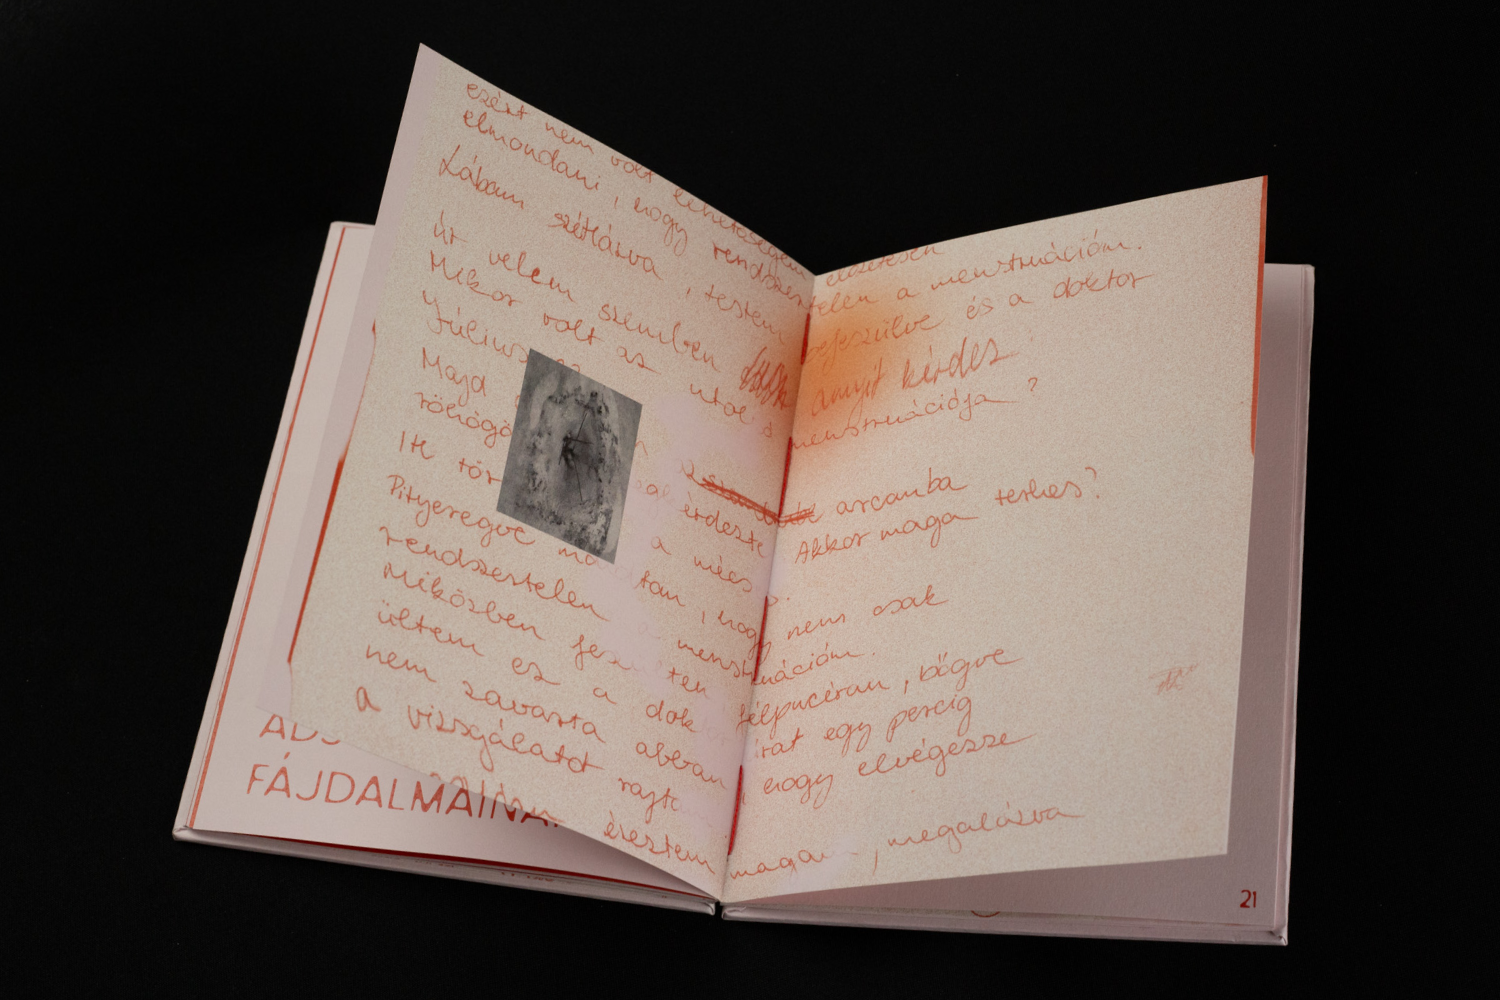 ezért nem volt lehetőségem előzetesen
elmondani, hogy rendszertelen a menstruációm.
Lábam széttárva, testem befeszülve és a doktor
úr velem szemben annyit kérdez
Mikor volt az utolsó menstruációja?
Július
Majd arcomba
röhögö érdezte Akkor maga terhes?
Itt tör a mécs s.
Pityeregve mo tam, hogy nem csak
rendszertelen a menstruációm.
Miközben félpucéran, bőgve
ültem ez a dok urat egy percig
nem zavarta abban, hogy elvégezze
a vizsgálatot rajta
éreztem magam, megalázva
FÁJDALMAINA
21